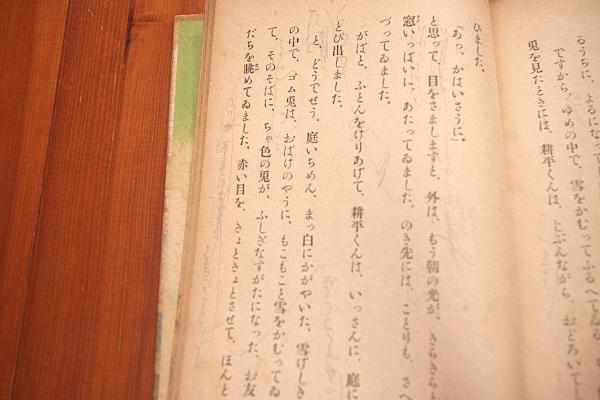 るうちに、よるになつて
ですから、ゆめの中で、雪をかむつてふるへてゐる
兎を見たときには、耕平くんは、じぶんながら、おどろいてし
ひました。
「あつ、かはいさうに」
と思つて、目をさましますと、外は、もう朝の光が、きらきらと
窓いつぱいに、あたつてゐました。のき先には、ことりも、さへ
づつてゐました。
がばと、ふとんをけりあげて、耕平くんは、いつさんに、庭に
とび出しました。
と、どうでせう。庭いちめん、まつ白にかがやいた、雪げしき
の中で、ゴム兎は、おばけのやうに、もこもこと雪をかむつてゐ
て、そのそばに、ちや色の兎が、ふしぎなすがたになつた、お友
だちを眺めてゐました。赤い目を、きよときよとさせて、ほんと